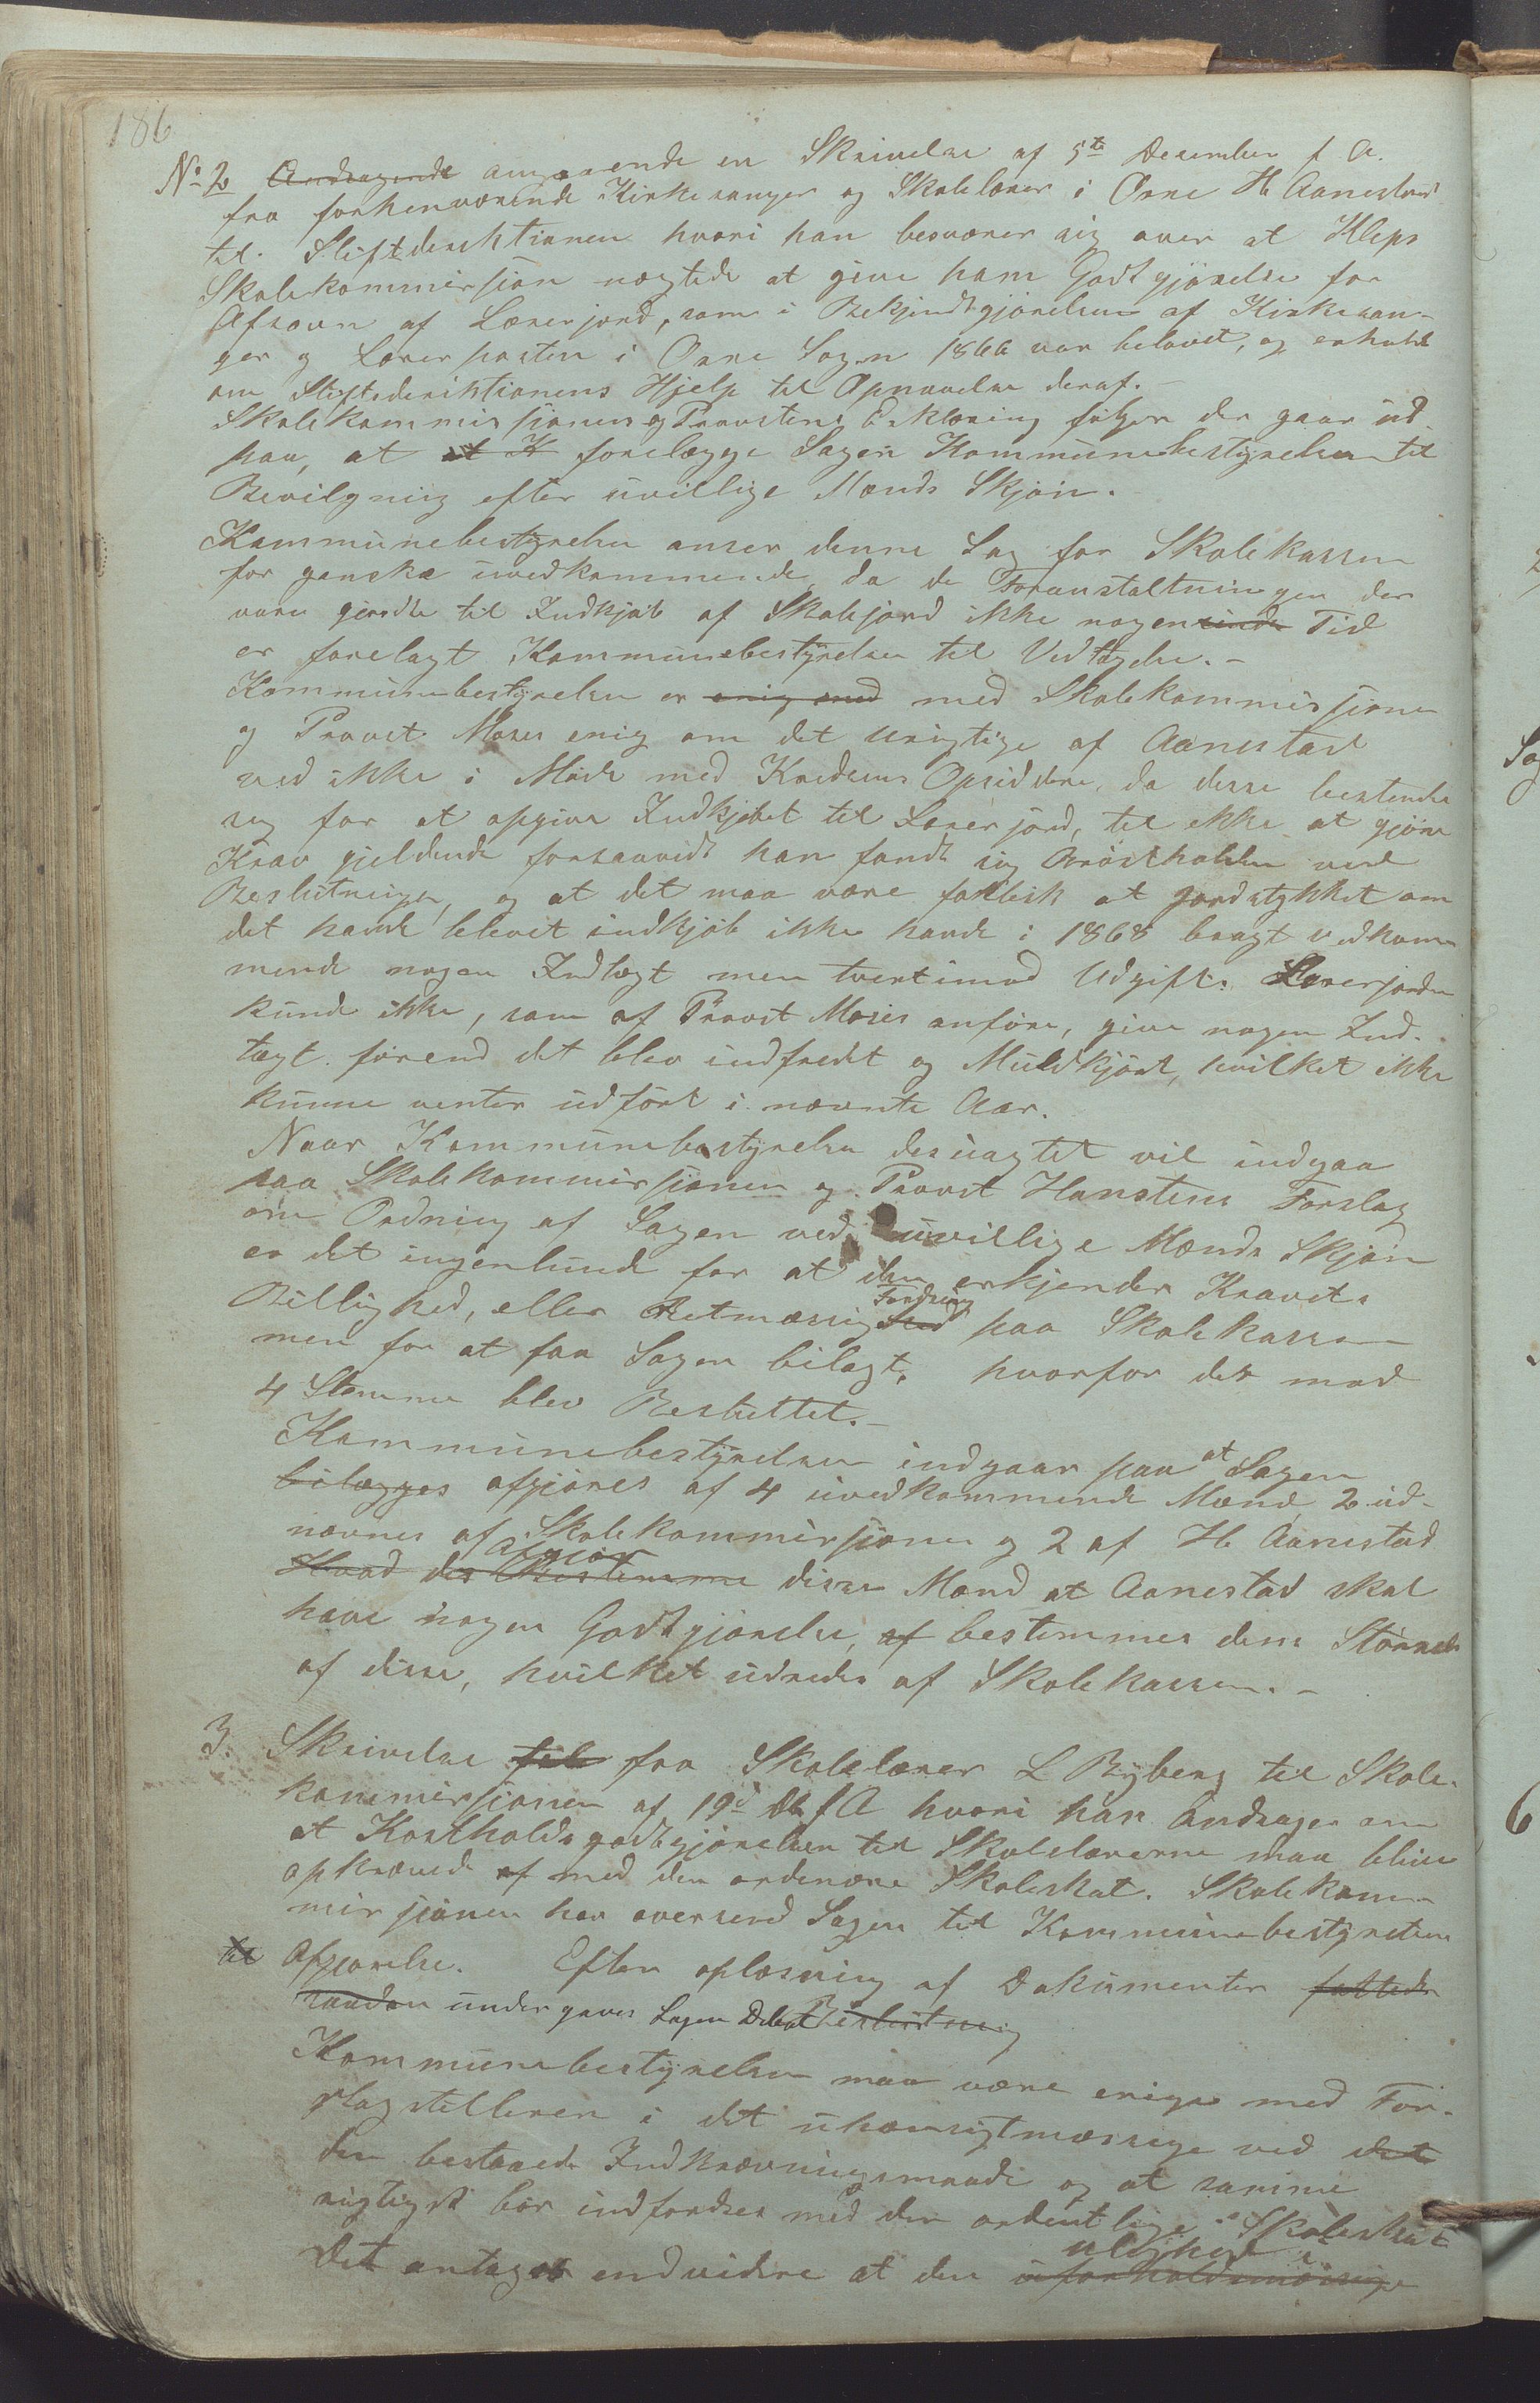 186
No 2 Andragende angaaende en Skrivelse af 5te Desember f A.
fra forhenværende Kirkesanger og Skolelærer i Orre H. Aanestad
til Stiftderektionen hvori han besværer sig over at Kleps
Skolekommission nægtede at give ham Godtgjørelse for
Afsavn af Lærerjord, som i Bekjendtgjørelsen af Kirkesan-
ger og Lærerposten i Orre Sogn 1866 var belovet, og erholde
om Stiftsderiktionens Hjelp til Opnaaelse deraf. -
Skolekommissjonens og Provstens Erklæring følger der gaar ud
paa, at at K forelægge Sagen Kommunebestyrelsen til
Bevilgning efter uvillige Mænds Skjøn.
Kommunebestyrelsen anser denne Sag for Skolekassen
for ganske uvedkommende, da de Foranstaltningen der
vare gjordte til Indkjøb af Skolejord ikke nogensinde Tid
er forelagt Kommunebestyrelsen til Vedtagelse. -
Kommunebestyrelsen er enig med med Skolekommissjonen
og Provst Moses enig om det urigtige af Aanestad
ved ikke i Møde med Kredsens Opsiddere, da disse bestemte
sig for at opgive Indkjøbet til Lærerjord, til ikke at gjøre
Krav gjeldende forsaavidt han fandt sig Brøstholden ved
Beslutningen, og at det maa være faktisk at Jordstykket om
det havde blevet indkjøb ikke havde i 1868 bragt vedkom-
mende nogen Indtægt men tvertimod Udgift. Lærerjorden
kunde ikke, som af Provst Moses anføre, give nogen Ind-
tægt førend det blev indfredet og Muldkjørt, hvilket ikke
kunne ventes udført i nævnte Aar.
Naar Kommunebestyrelsen desuagtet vil indgaa
paa Skolekommissjonen og Provst Hansteens Forslag
om Ordning af Sagen ved uvillige Mænds Skjøn
er det ingenlunde for at den erkjender Kravets
Billighed, eller Retmæssighed Fordring paa Skolekassen
men for at faa Sagen bilagt, hvorfor det mod
4 Stemme blev Besluttet. -
Kommunebestyrelsen indgaar paa at Sagen
bilægges afgjøres af 4 uvedkommende Mænd 2 ud-
nævnes af Skolekommissjonen og 2 af H. Aanestad
Hvad der Bestemme Afgjør disse Mænd at Aanestad skal
have nogen Godtgjørelse, af bestemmes dens Størrelse
af disse, hvilket udredes af Skolekassen. -
3. Skrivelse til fra Skolelærer L Ryberg til Skole-
kommissjonen af 19d f A hvori han Andrager om
at Kostholdsgodtgjørelsen til Skolelærerne maa blive
opkrævede af med den ordenære Skoleskat. Skolekom-
missjonen har oversend Sagen til Kommunebestyrelsen
til Afgjørelse. Efter oplæsning af Dokumenter fattedes
saadan undergaves Sagen Debat Beslutning
Kommunebestyrelsen maa være enige med For-
slagstilleren i det uhensigtmæssige ved det
den bestaaede Indkrævningsmaade og at samme
rigtigst bør indfordres med den ordentlige Skoleskat
Det antages endvidere at den uforholdsmæssige ulighed i